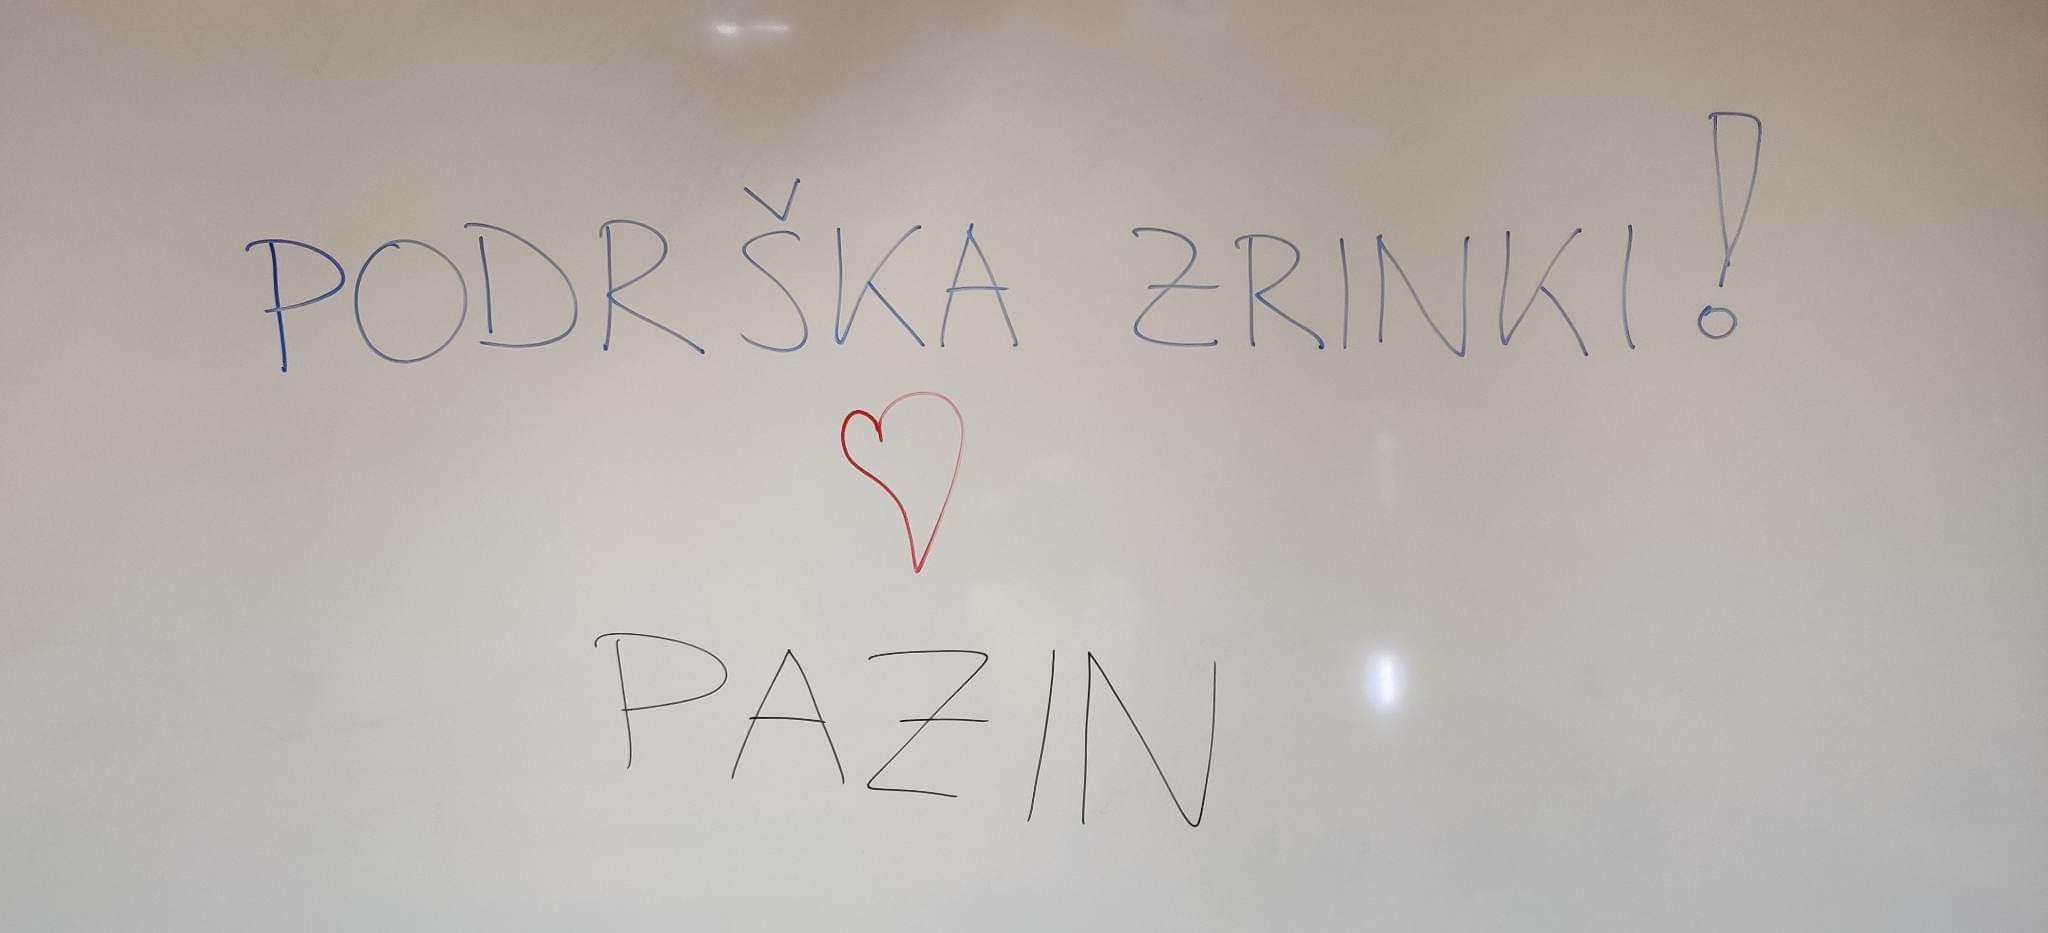 PODRŠKA ZRINKI!
PAZIN